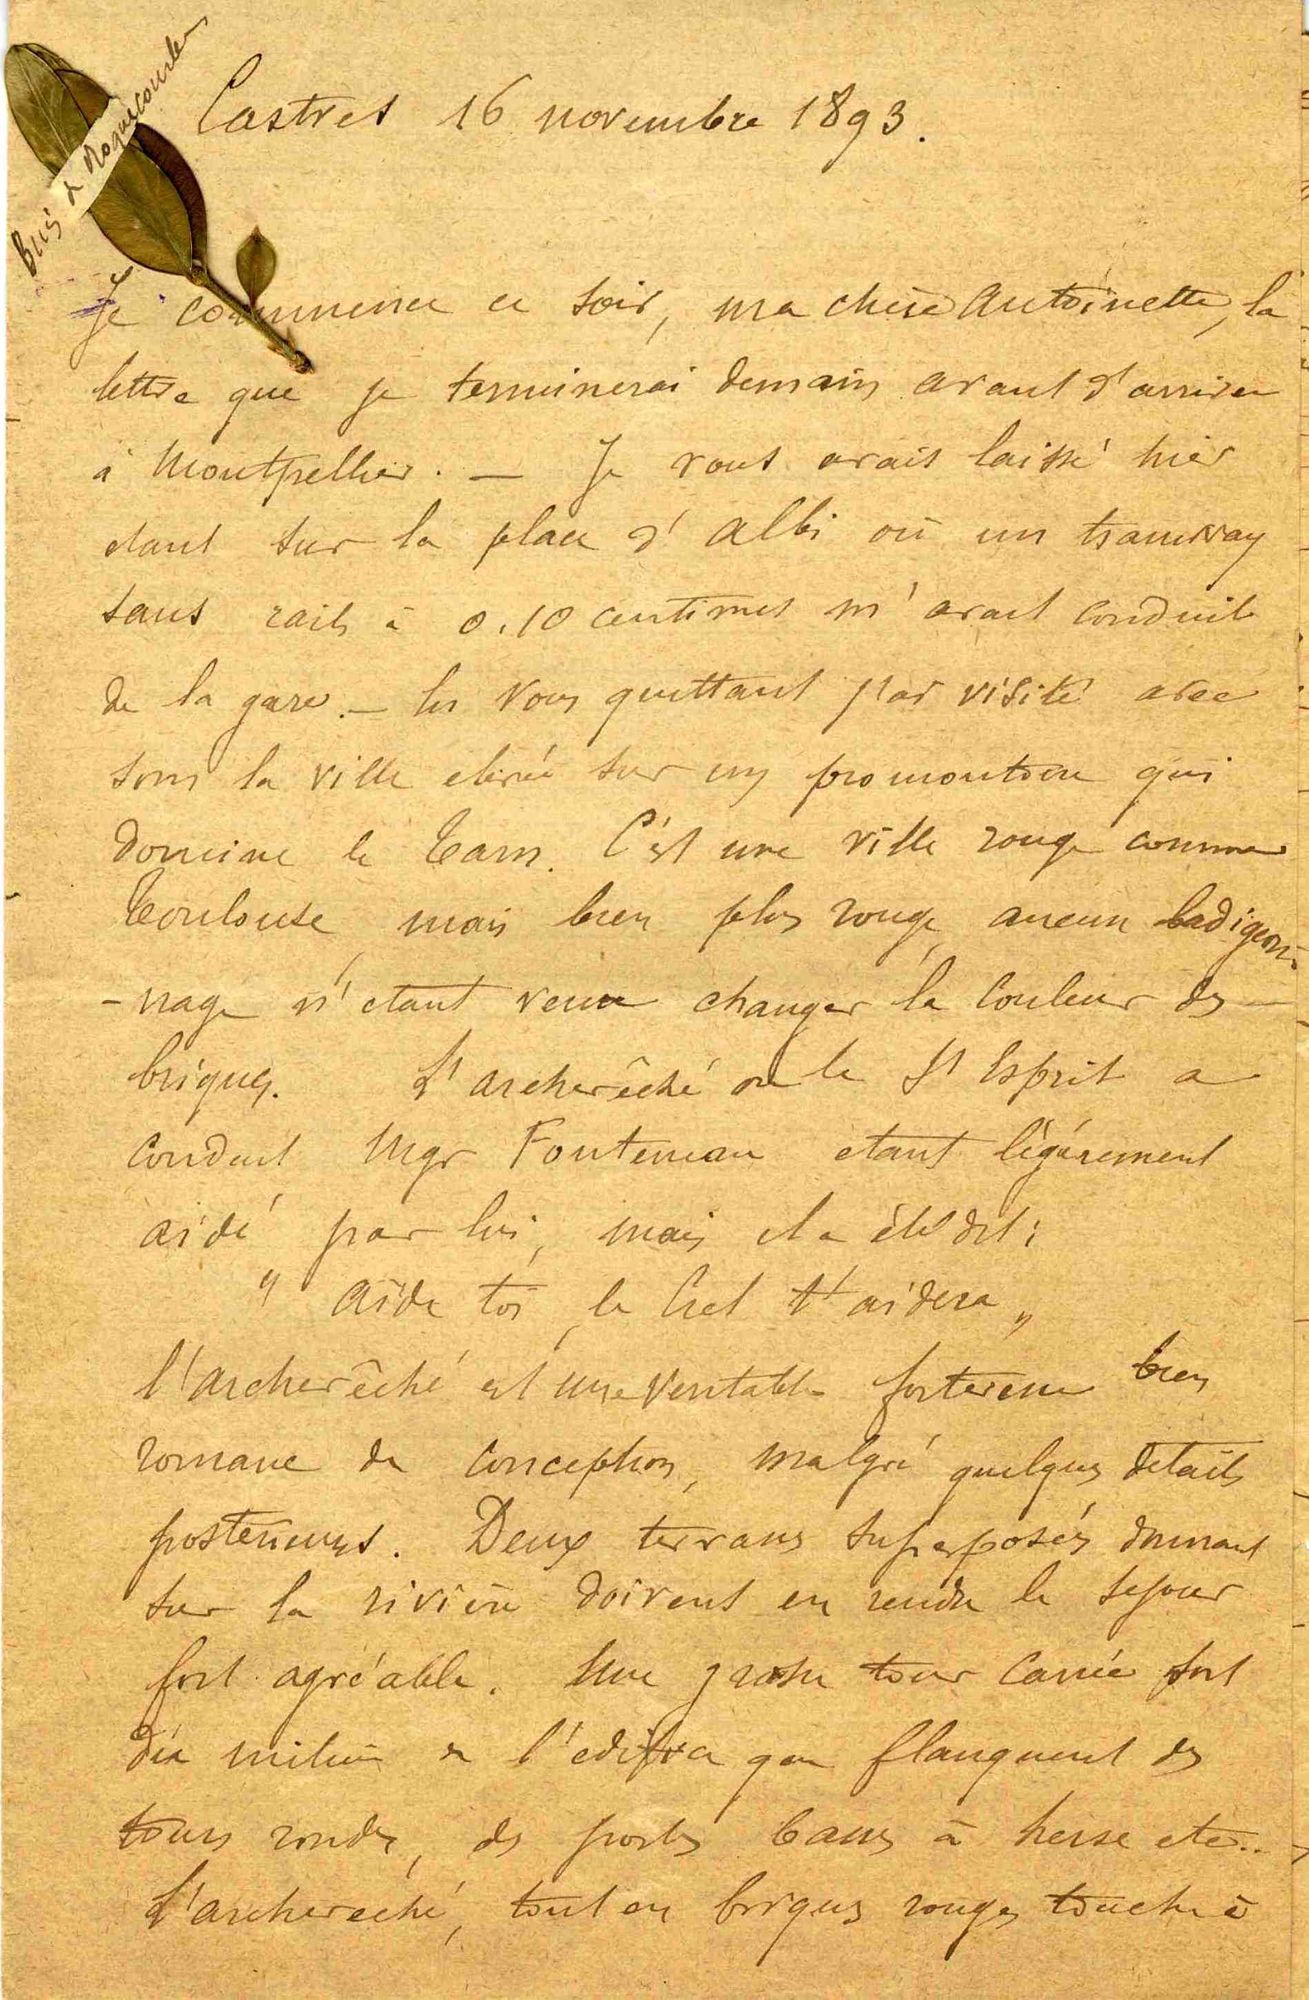 Buis de Roquecourbe
Castres 16 novembre 1893.
Je commence ce soir, ma chère Antoinette, la
lettre que je terminerai demain avant d'arriver
à Montpellier. — Je vous avais laissé hier
étant sur la place d'Albi où un tramway
sans rails à 0.10 centimes m'avait conduit
de la gare. — En vous quittant j'ai visité avec
soin la ville élevée sur un promontoire qui
domine le Tarn. C'est une ville rouge comme
Toulouse, mais bien plus rouge, aucun badigeon-
-nage n'étant venu changer la couleur des
briques. L'archevêché où le St Esprit a
conduit Mgr Fonteneau étant légèrement
aidé par lui, mais il a été dit:
" Aide toi, le Ciel t'aidera „
l'archevêché est une veritable forteresse bien
romane de conception, malgré quelques details
posterieurs. Deux terrasses superposées donnant
sur la rivière doivent en rendre le sejour
fort agréable. Une grosse tour carrée fort
du milieu de l'edifice que flanquent des
tours rondes, des portes basses à herse etc..
L'archevêché, tout en briques rouges touche à